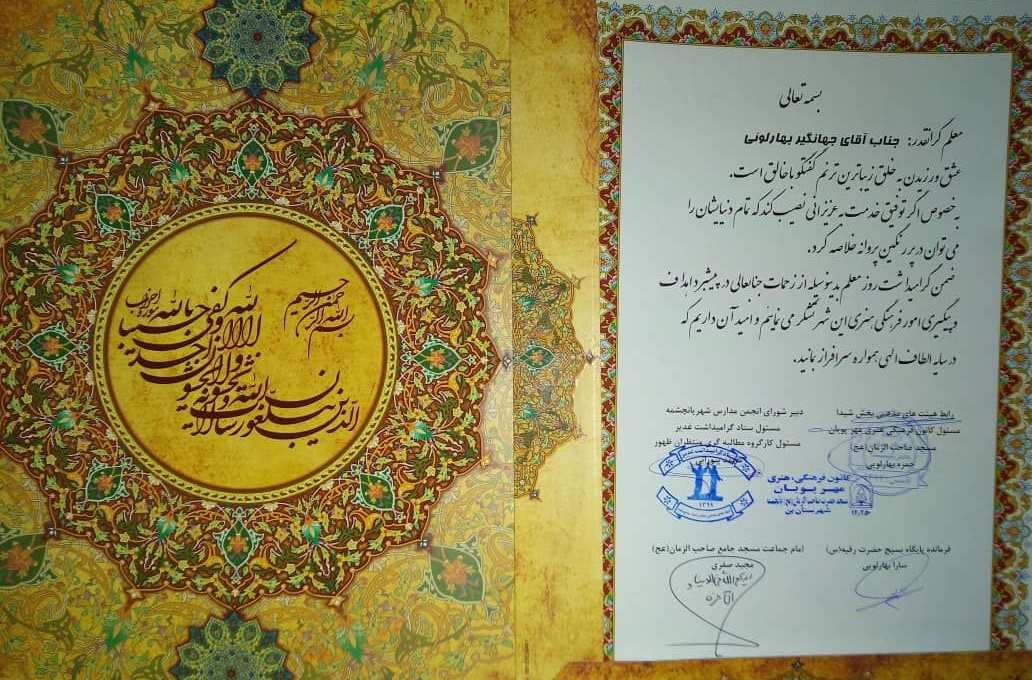 بسمه تعالی
معلم گرانقدر: جناب آقای جهانگیر بهارلوئی
عشق ورزیدن به خلق زیباترین ترنم گفتگو با خالق است.
به خصوص اگر توفیق خدمت به عزیزانی نصیب کند که تمام دنیایشان را
می توان در پر رنگین پروانه خلاصه کرد.
ضمن گرامیداشت روز معلم بدینوسیله از زحمات جنابعالی در پیشبرد اهداف
و پیگیری امور فرهنگی هنری این شهر تشکر می نمایم و امید آن داریم که
در سایه الطاف الهی همواره سرافراز بمانید.
رابط هیئت های مذهبی بخش شیدا
مسئول کانون فرهنگی هنری مهر پویان
مسجد صاحب الزمان(عج)
حمزه بهارلویی
دبیر شورای انجمن مدارس شهریانچشمه
مسئول ستاد گرامیداشت غدیر
مسئول کارگروه مطالبه گری منتظران ظهور
کانون فرهنگی، هنری
مهر پویان
شهرستان بن
۱۳۹۹
فرمانده پایگاه بسیج حضرت رقیه(س)
سارا بهارلویی
امام جماعت مسجد جامع صاحب الزمان(عج)
مجید صفری
بسم الله الرحمن الرحیم
الذین یبلغون رسالات الله و یخشونه و لا یخشون احدا الا الله و کفی بالله حسیبا